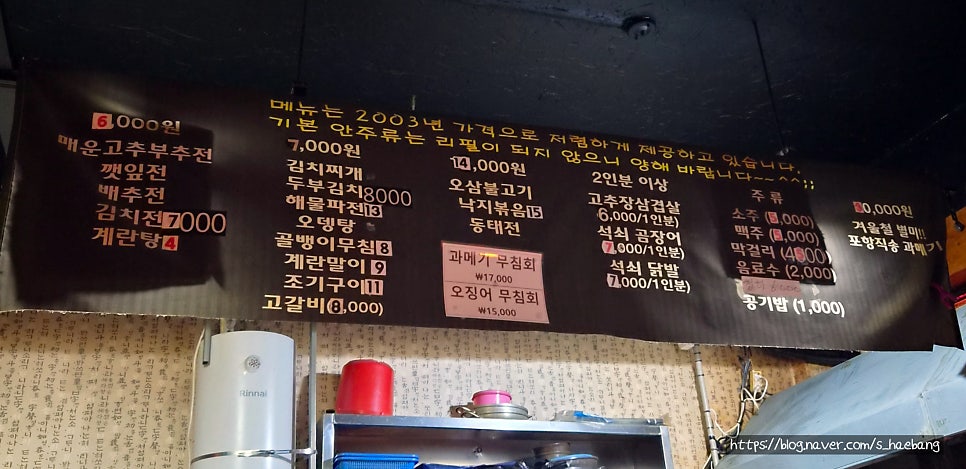 메뉴는 2003년 가격으로 저렴하게 제공하고 있습니다.
기본 안주류는 리필이 되지 않으니 양해 바랍니다~^^;;
6,000원
매운고추부추전
깻잎전
배추전
김치전 7000
계란탕 4
7,000원
김치찌개
두부김치 8000
해물파전 13
오뎅탕
골뱅이무침 8
계란말이 9
조기구이 11
고갈비 (8,000)
14,000원
오삼불고기
낙지볶음 15
동태전
과메기 무침회
₩17,000
오징어 무침회
₩15,000
2인분 이상
고추장삼겹살
6,000/1인분)
석쇠 곰장어
7,000/1인분)
석쇠 닭발
7,000/1인분)
주류
소주 (5,000)
맥주 (5,000)
막걸리
음료수 (2,000)
공기밥 (1,000)
0,000원
겨울철 별미!!
포항직송 과메기
Rinnai
https://blog.naver.com/s_haebang